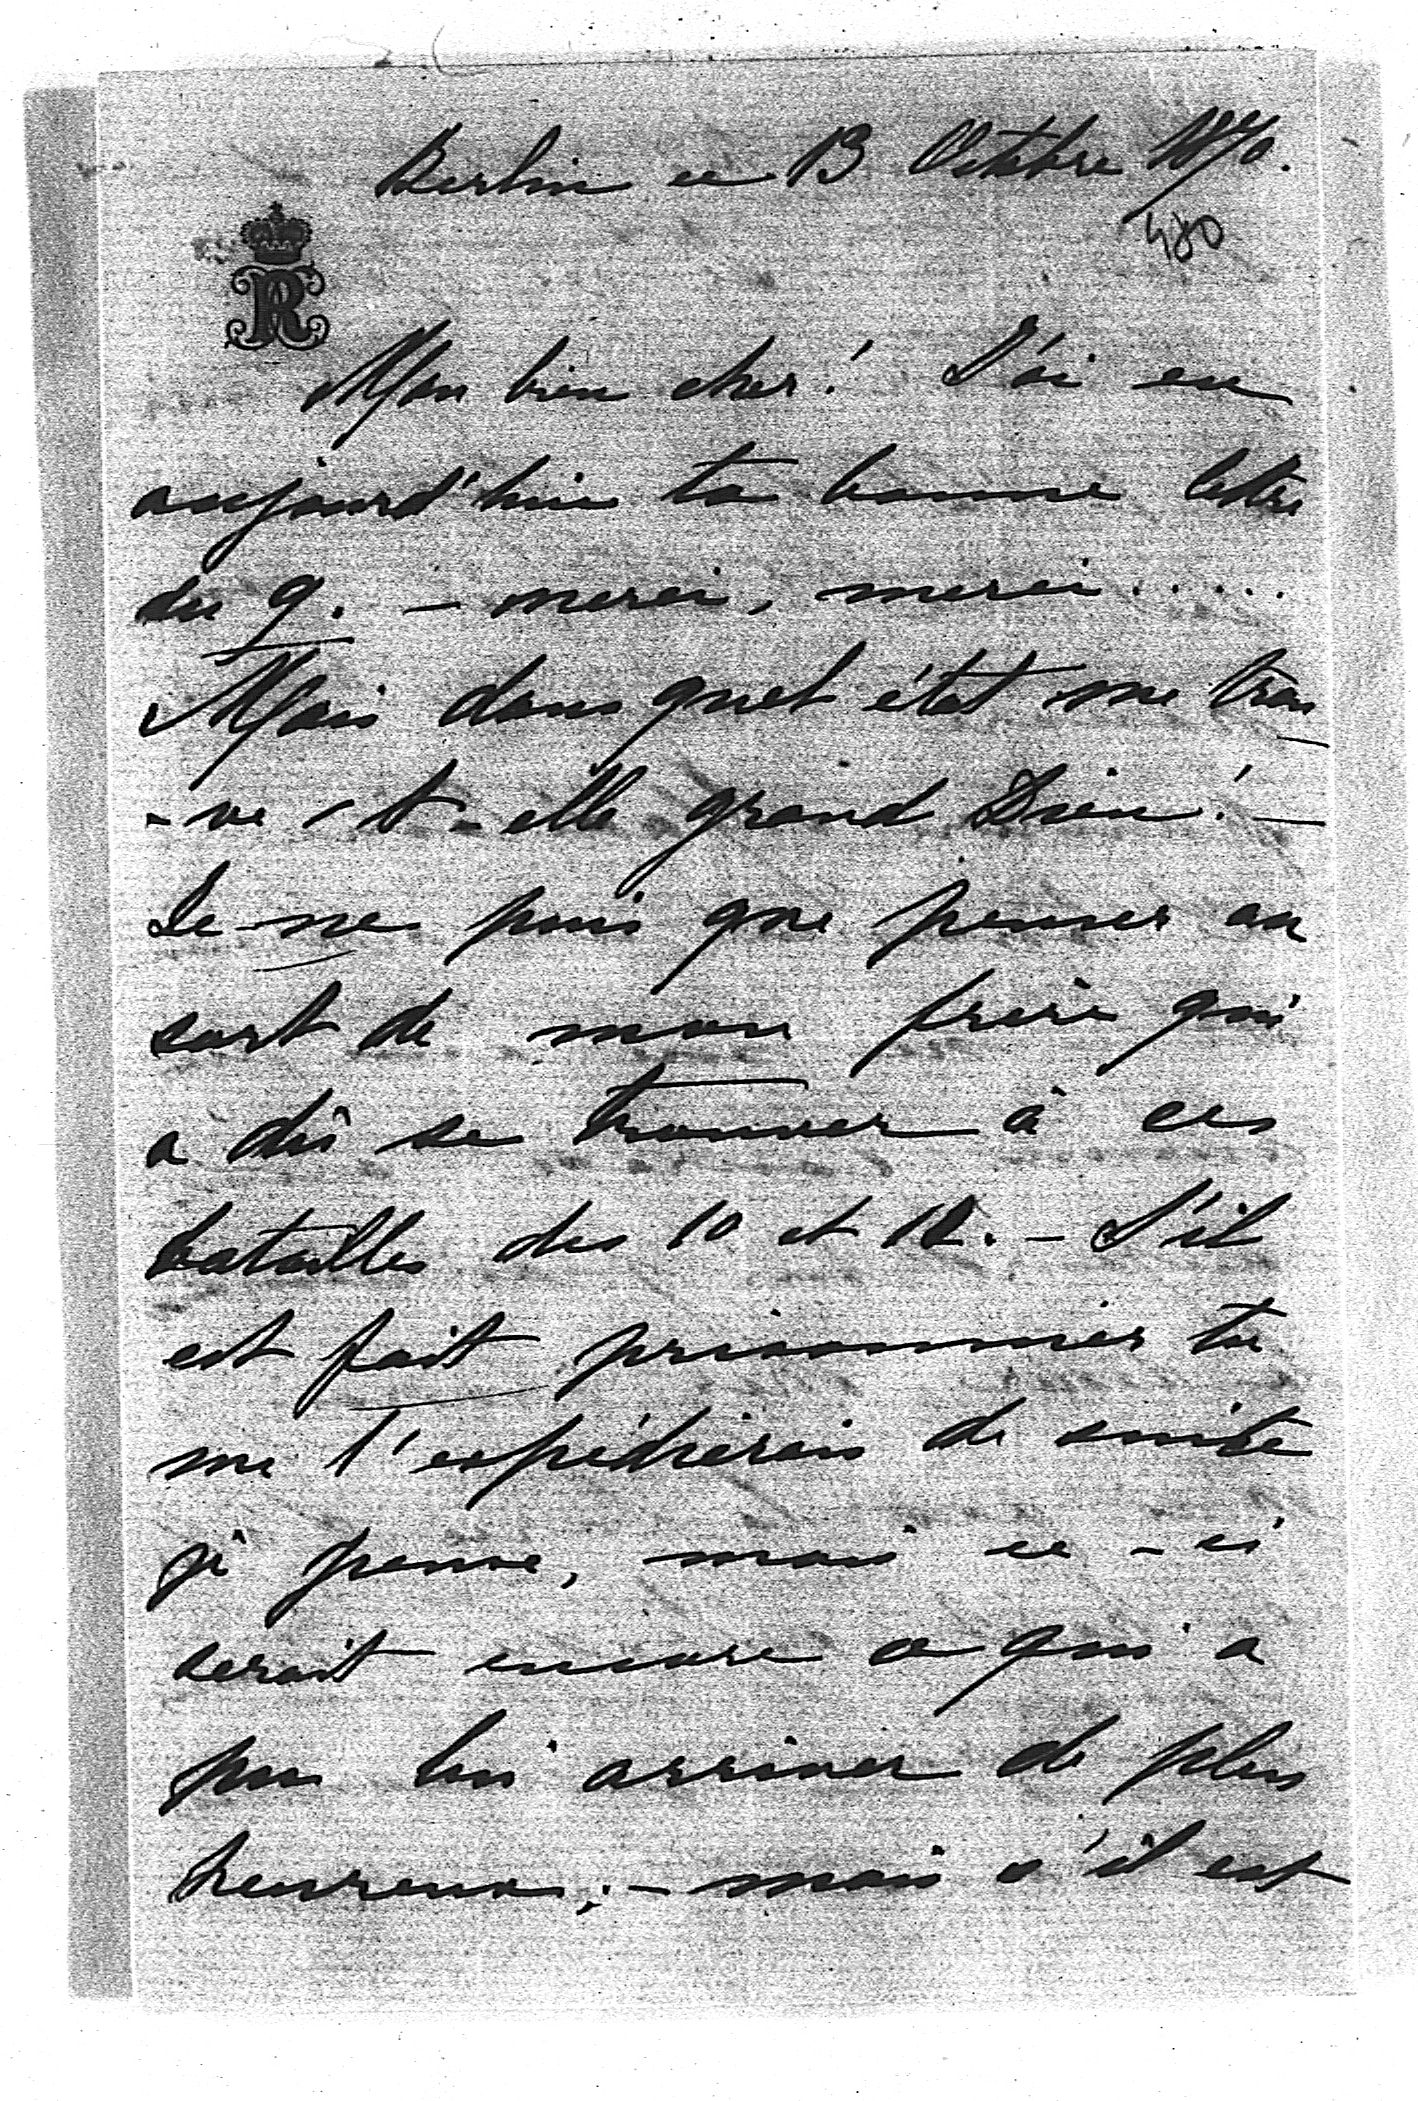 Berlin ce 13 Octobre 1870.
480
R
Mon bien cher! J'ai eu
aujourd'hui ta bonne lettre
du 9. – merci, merci.....
Mais dans quel état me trou
-ve-t-elle grand Dieu! –
Je ne puis que penser au
sort de mon frère qui
a dû se trouver à ces
batailles des 10 et 12. – S'il
est fait prisonnier tu
me l'expédierais de suite
je pense, mais ce-ci
serait encore ce qui a
pu lui arriver de plus
heureux; – mais s'il est